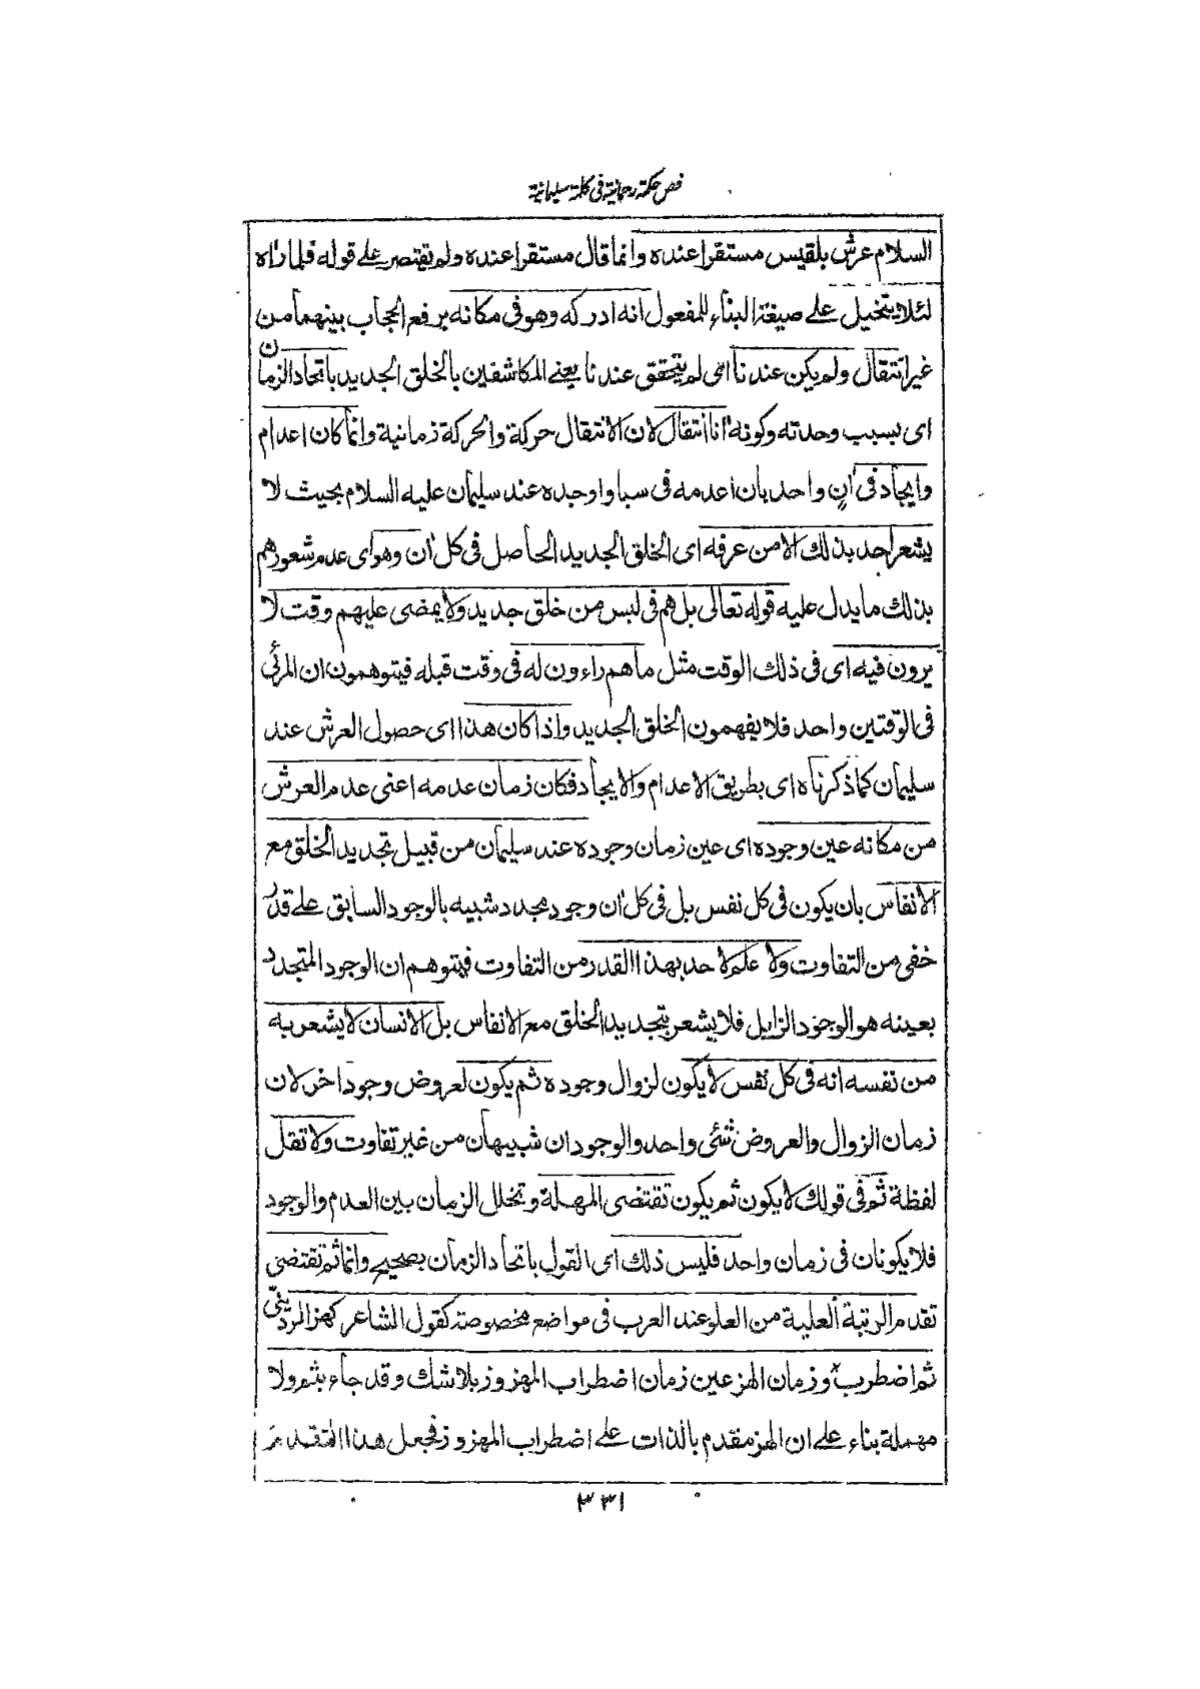 فص حكمة رحمانية في كلمة سليمانية
السلام عرش بلقيس مستقرا عنده وانما قال مستقرا عنده ولم يقتصر على قوله فلما رآه
لئلا يتخيل على صيغة البناء للمفعول انه ادركه وهو فى مكانه برفع الحجاب بينهما من
غير انتقال ولم يكن عندنا اى لم يتحقق عندنا يعنى المكاشفين بالخلق الجديد باتحاد الزمان
اى بسبب وحدته وكونه آنا انتقال لان الانتقال حركة والحركة زمانية وانما كان اعدام
وايجاد فى آن واحد بان اعدمه فى سبا واوجده عند سليمان عليه السلام بحيث لا
يشعر احد بذلك الا من عرفه اى الخلق الجديد الحاصل فى كل آن وهو اى عدم شعورهم
بذلك ما يدل عليه قوله تعالى بل هم فى لبس من خلق جديد ولا يمضى عليهم وقت لا
يرون فيه اى فى ذلك الوقت مثل ما هم راءون له فى وقت قبله فيتوهمون ان المرئى
فى الوقتين واحد فلا يفهمون الخلق الجديد واذا كان هذا اى حصول العرش عند
سليمان كما ذكرناه اى بطريق الاعدام والايجاد فكان زمان عدمه اعنى عدم العرش
من مكانه عين وجوده اى عين زمان وجوده عند سليمان من قبيل تجديد الخلق مع
الانفاس بان يكون فى كل نفس بل فى كل آن وجود مجدد شبيه بالوجود السابق على قدر
خفى من التفاوت ولا علم لاحد بهذا القدر من التفاوت فيتوهم ان الوجود المتجدد
بعينه هو الوجود الزايل فلا يشعر بتجديد الخلق مع الانفاس بل الانسان لا يشعر به
من نفسه انه فى كل نفس لا يكون لزوال وجوده ثم يكون لعروض وجود اخر لان
زمان الزوال والعروض شئى واحد والوجودان شبيهان من غير تفاوت ولا تقل
لفظة ثم فى قولك لا يكون ثم يكون تقتضى المهلة وتخلل الزمان بين العدم والوجود
فلا يكونان فى زمان واحد فليس ذلك اى القول باتحاد الزمان بصحيح وانما ثم تقتضى
تقدم الرتبة العلية من العلو عند العرب فى مواضع مخصوصة كقول الشاعر كهز الردينى
ثم اضطرب وزمان الهز عين زمان اضطراب المهزوز بلا شك وقد جاء بثم ولا
مهملة بناء على ان الهز مقدم بالذات على اضطراب المهزوز فجعل هذا التقدم
٣٣١